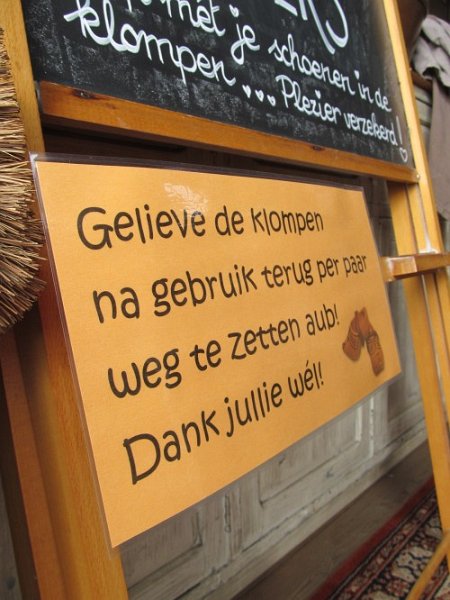 mét je schoenen in de
klompen ... Plezier verzekerd!
Gelieve de klompen
na gebruik terug per paar
weg te zetten aub!
Dank jullie wél!